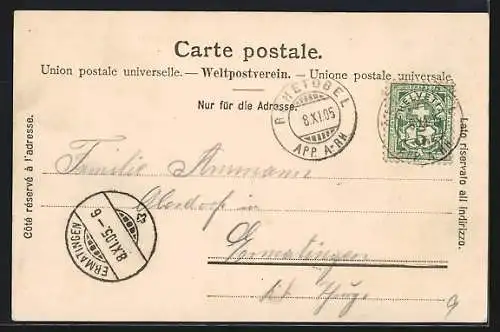 Carte postale.
Union postale universelle. — Weltpostverein. — Unione postale universale.
Nur für die Adresse.
REHETOBEL
8.XI.05
APP. A-RH
HELVETIA
5
Côté réservé à l'adresse.
Lato riservato all indirizzo.
Familie Ammann
Oberdorf in
Ermatingen
Kt. Thurg.
ERMATINGEN
8.XI.05.-6